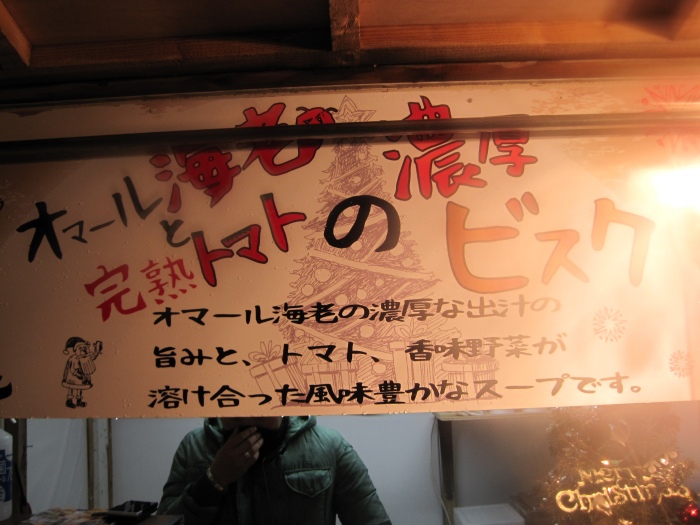 オマール海老と
完熟トマトの
濃厚
ビスク
オマール海老の濃厚な出汁の
旨みと、トマト、香味野菜が
溶け合った風味豊かなスープです。
Merry
Christmas